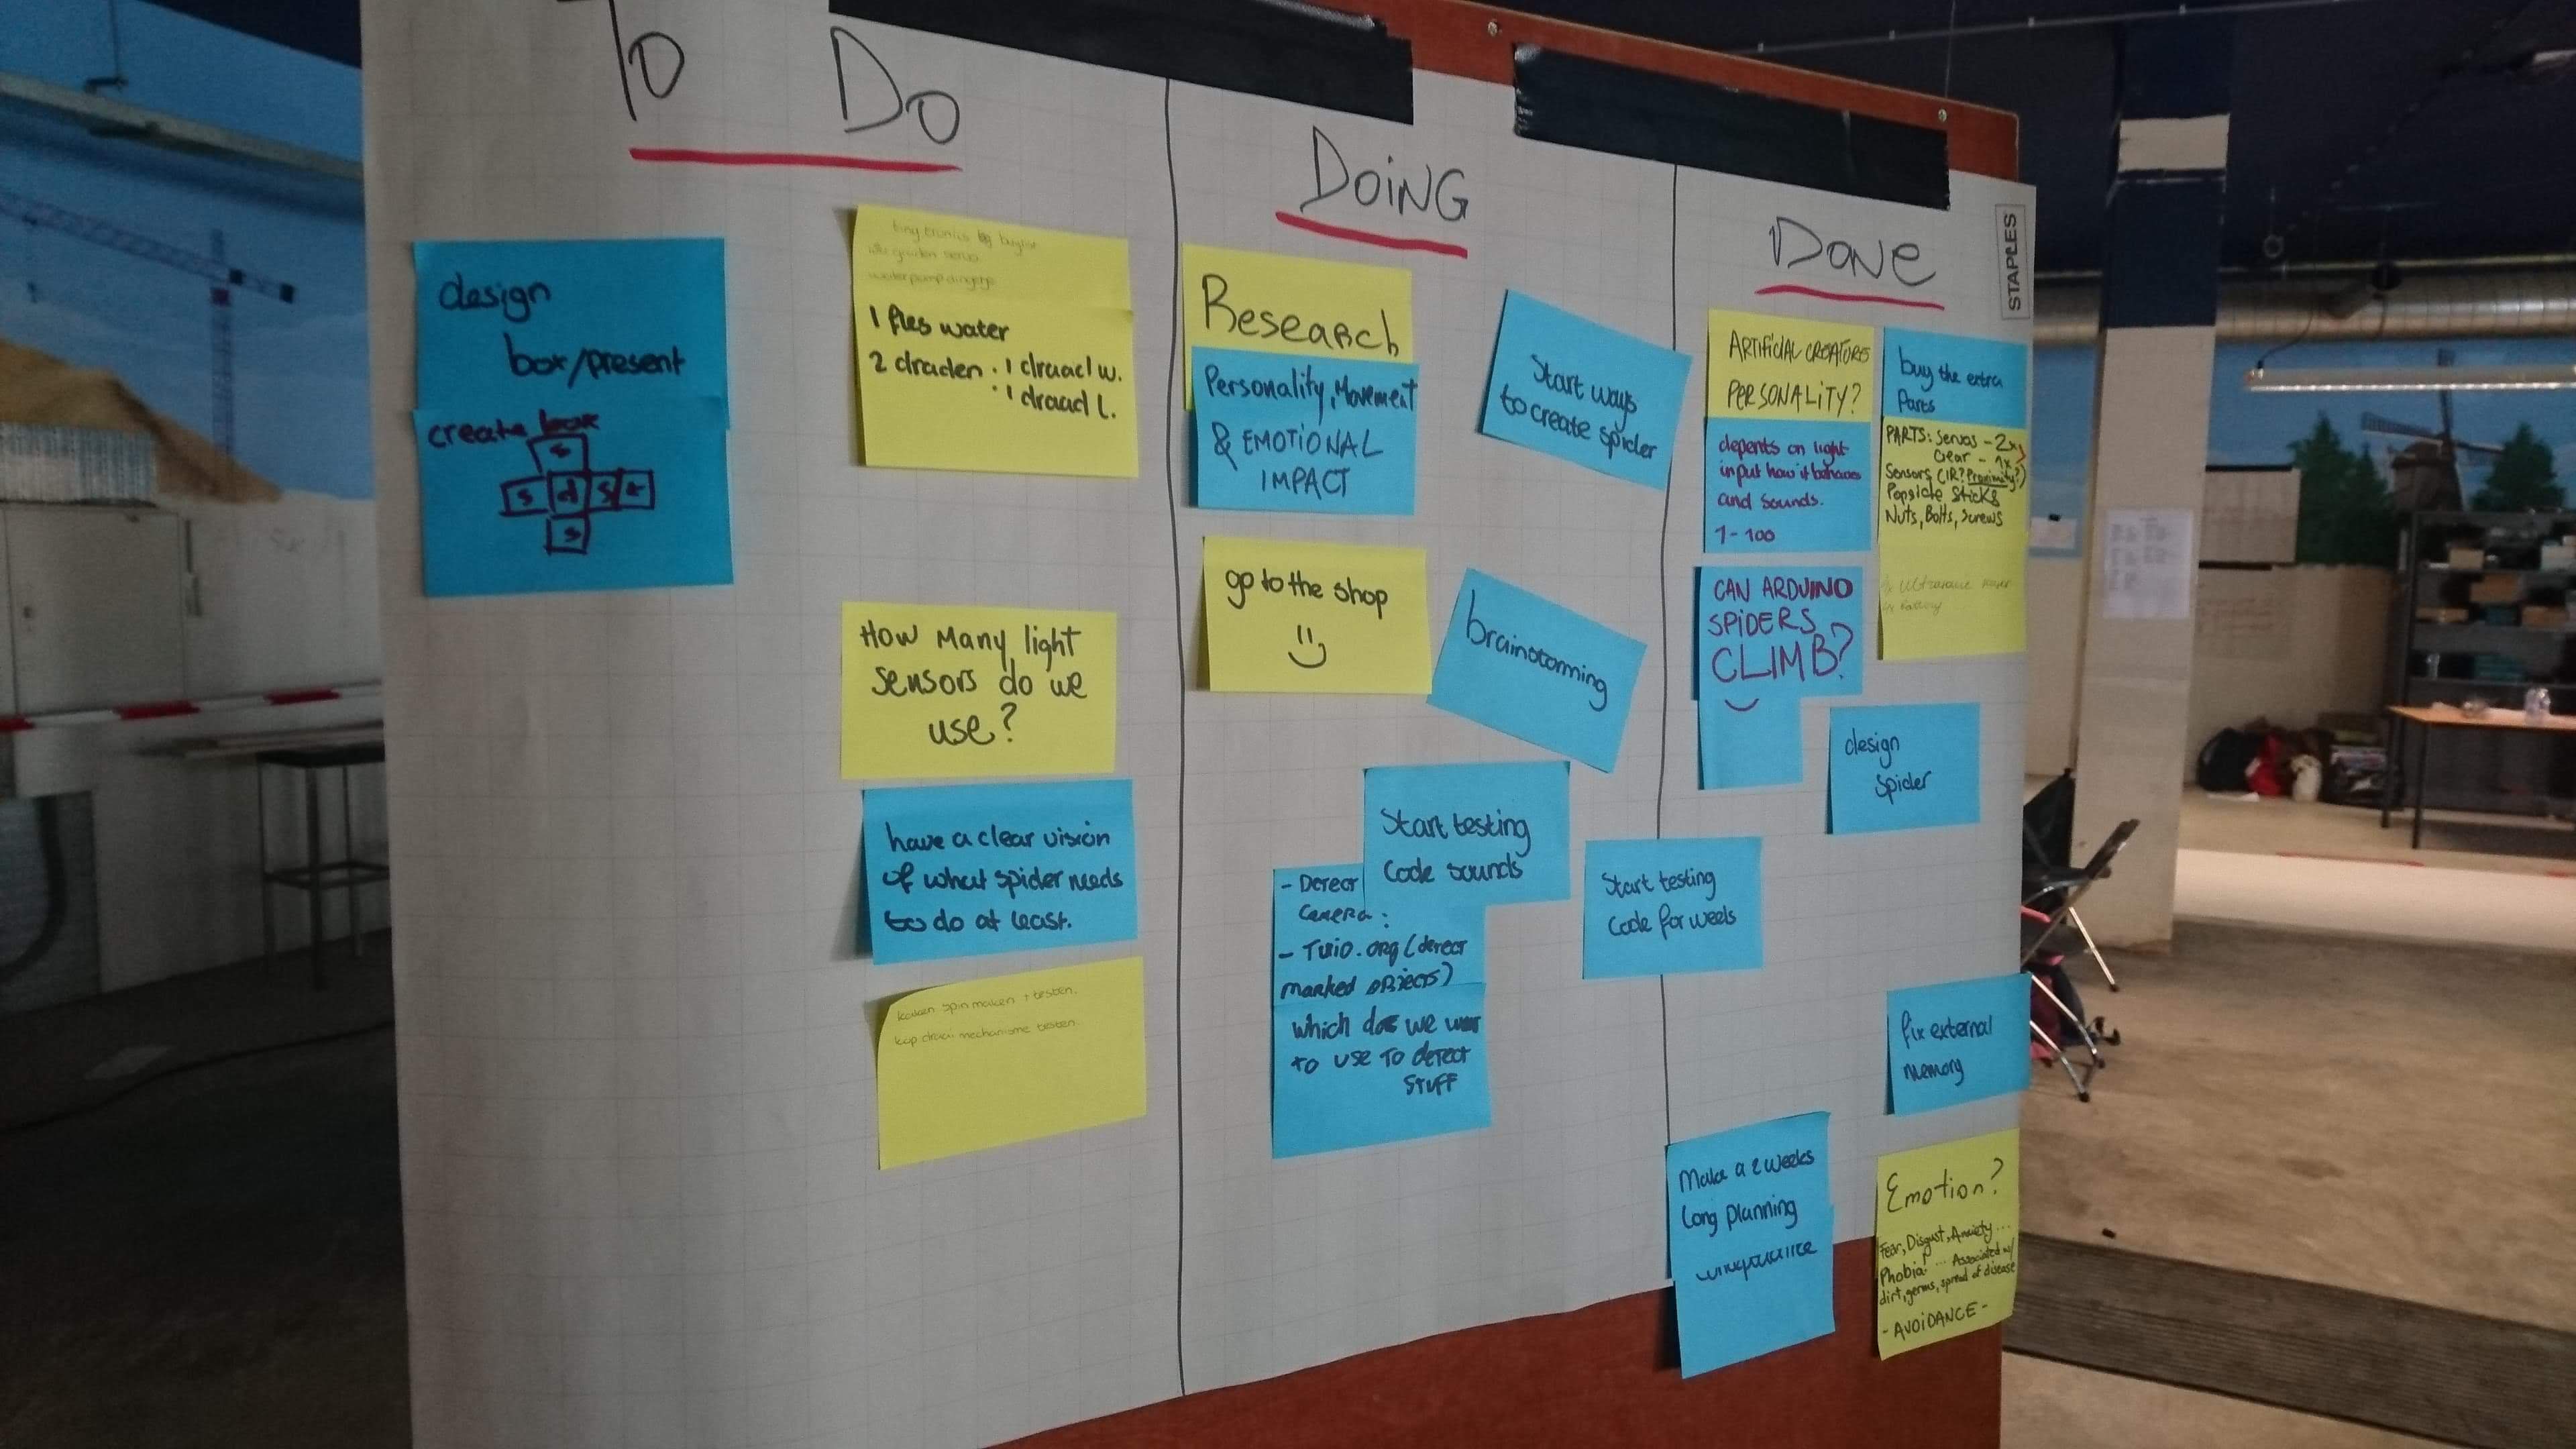 To Do
design
box/present
create box
s
s d s t
s
1 fles water
2 draden : 1 draad w.
1 draad l.
How Many light
sensors do we
use?
have a clear vision
of what spider needs
to do at least.
spin maken + testen.
mechanisme testen.
DOiNG
Research
Personality, Movement
& EMOTIONAL
IMPACT
Start ways
to create spider
go to the shop
brainstorming
Start testing
Code sounds
- Detect
Camera:
- Tuio.org (detect
marked objects)
which do we
to use to detect
STUFF
Start testing
Code for weels
Done
STAPLES
ARTIFICIAL CREATURE
PERSONALITY?
depents on light
input how it behaves
and sounds.
1-100
buy the extra
Parts
PARTS: Servos - 2x
Gear - 1x
Sensors (IR? Proximity?)
Popsicle Sticks
Nuts, Bolts, Screws
CAN ARDUINO
SPIDERS
CLIMB?
design
spider
fix external
memory
Make a 2 weeks
long planning
Emotion?
Fear, Disgust, Anxiety...
Phobia? ... Associated w/
dirt, germs, spread of disease
- AVOIDANCE -